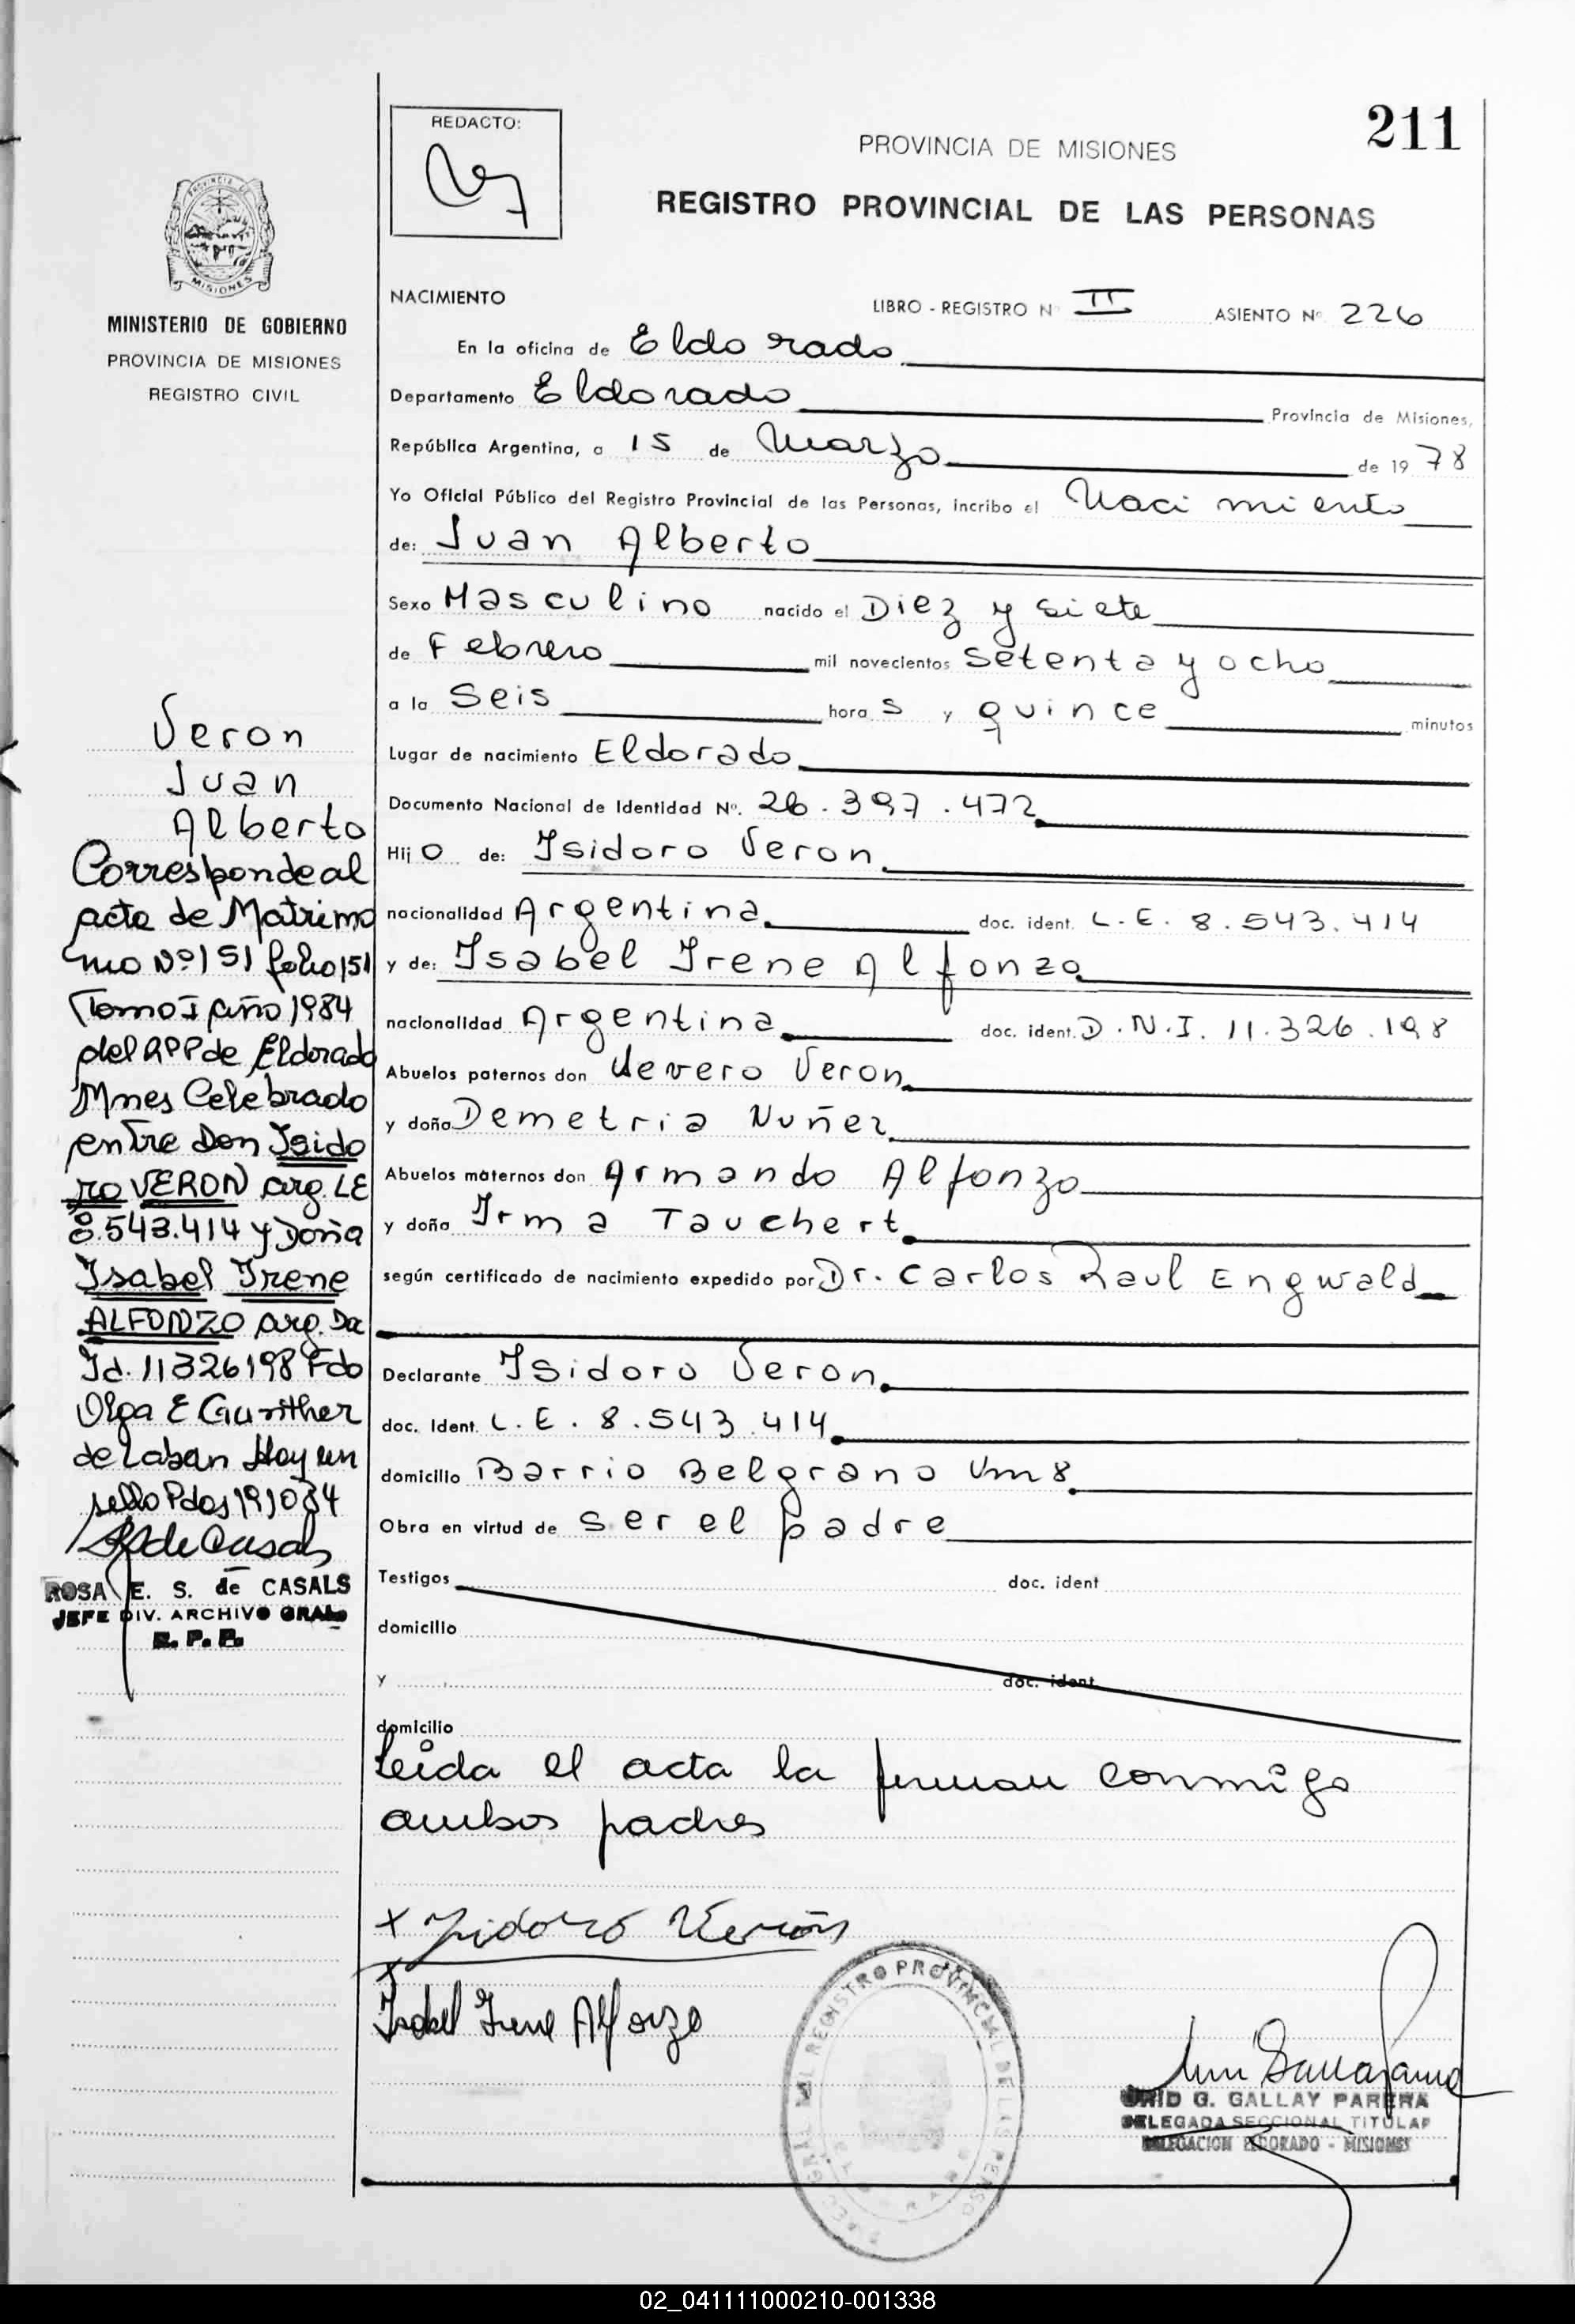 211
REDACTO:
PROVINCIA DE MISIONES
REGISTRO PROVINCIAL DE LAS PERSONAS
MISIONES
MINISTERIO DE GOBIERNO
PROVINCIA DE MISIONES
REGISTRO CIVIL
NACIMIENTO
LIBRO - REGISTRO Nº II ASIENTO Nº 226
En la oficina de Eldorado
Departamento Eldorado Provincia de Misiones,
República Argentina, a 15 de Marzo de 1978
Yo Oficial Público del Registro Provincial de las Personas, incribo el Nacimiento
de: Juan Alberto
Sexo Masculino nacido el Diez y siete
de Febrero mil novecientos setenta y ocho
a la Seis horas y quince minutos
Lugar de nacimiento Eldorado
Documento Nacional de Identidad Nº. 26.397.472
Hijo de: Isidoro Veron
nacionalidad Argentina doc. ident. L.E. 8.543.414
y de: Isabel Irene Alfonzo
nacionalidad Argentina doc. ident. D.N.I. 11.326.198
Abuelos paternos don Severo Veron
y doña Demetria Nuñez
Abuelos maternos don Armando Alfonzo
y doña Irma Tauchert
según certificado de nacimiento expedido por Dr. Carlos Raul Engwald
Declarante Isidoro Veron
doc. Ident. L.E. 8.543.414
domicilio Barrio Belgrano Km 8
Obra en virtud de ser el padre
Testigos doc. ident
domicilio
y doc. ident
domicilio
Leida el acta la firman conmigo
ambos padres
Veron
Juan
Alberto
Corresponde al
acta de Matrimo
nio Nº 151 folio 151
Tomo I año 1984
del RPP de Eldorado
Mnes Celebrado
entre Don Isido
ro VERON arg. LE
8.543.414 y Doña
Isabel Irene
ALFONZO arg. Da
Id. 11326198 Fdo
Olga E Gunther
de Laban Hay un
sello Pdas 191084
ROSA E. S. de CASALS
JEFE DIV. ARCHIVO GRAL
R. P. P.
x Isidoro Verón
x
Isabel Irene Alfonzo
REGISTRO PROVINCIAL DE LAS PERSO
G. GALLAY PARERA
DELEGADA SECCIONAL TITULAR
DELEGACION ELDORADO - MISIONES
02_041111000210-001338